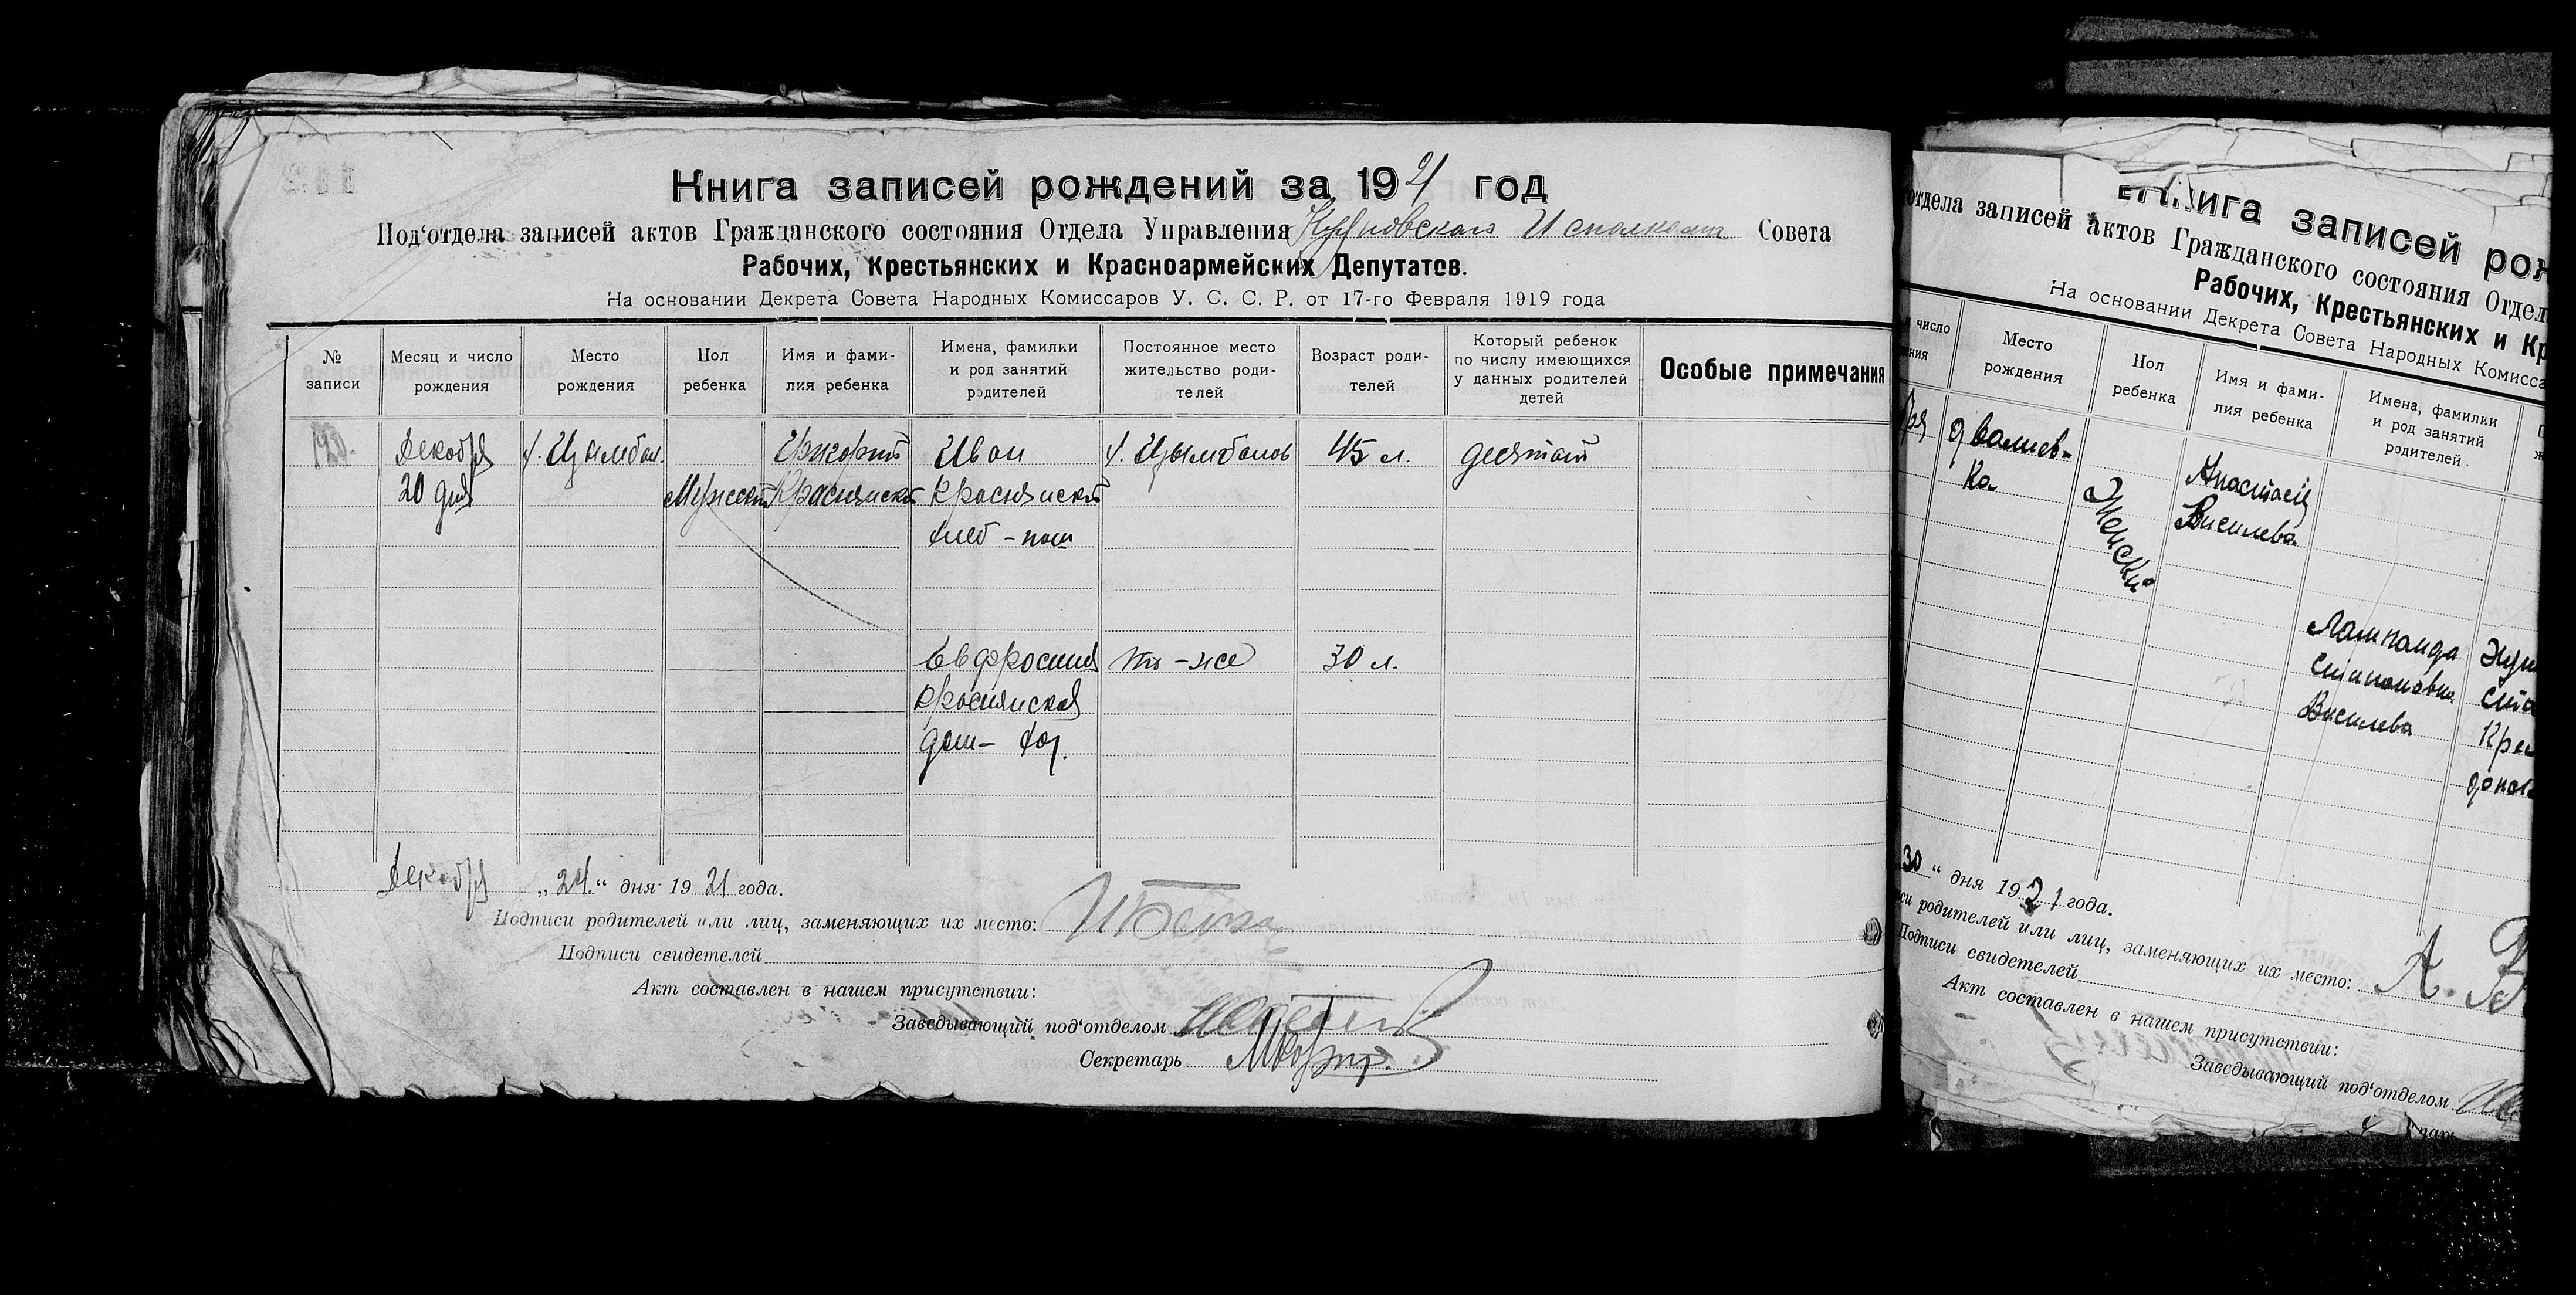 Книга записей рождений за 1921 год
Под'отдела записей актов Гражданского состояния Отдела Управления Исполкома Совета
Рабочих, Крестьянских и Красноармейских Депутатов.
На основании Декрета Совета Народных Комиссаров У. С. С. Р. от 17-го Февраля 1919 года
№ записи
Месяц и число рождения
Место рождения
Пол ребенка
Имя и фами- лия ребенка
Имена, фамилки и род занятий родителей
Постоянное место жительство роди- телей
Возраст роди- телей
Который ребенок по числу имеющихся у данных родителей детей
Особые примечания
120.
Декабря
20 дня
х. Цымбал.
Мужской
Григорий
Краснянский
Иван
Краснянский
хлеб - паш
х. Цымбалов
45 л.
десятый
Евфросиния
Краснянская
дом - хоз.
то - же
30 л.
Декабря „24.“ дня 1921 года.
Подписи родителей или лиц, заменяющих их место:
Подписи свидетелей
Акт составлен в нашем присутствии:
Заведывающий под'отделом
Секретарь
нига записей рож
отдела записей актов Гражданского состояния Отдел
Рабочих, Крестьянских и Кр
На основании Декрета Совета Народных Комисса
и число
ния
Место рождения
Пол ребенка
Имя и фами- лия ребенка
Имена, фамилки и род занятий родителей.
бря
Женский
Анастасия
Василева
Степановна
Василева
30 “ дня 1921 года.
си родителей или лиц, заменяющих их место: А. В
Подписи свидетелей
Акт составлен в нашем присутствии:
Заведывающий под'отделом